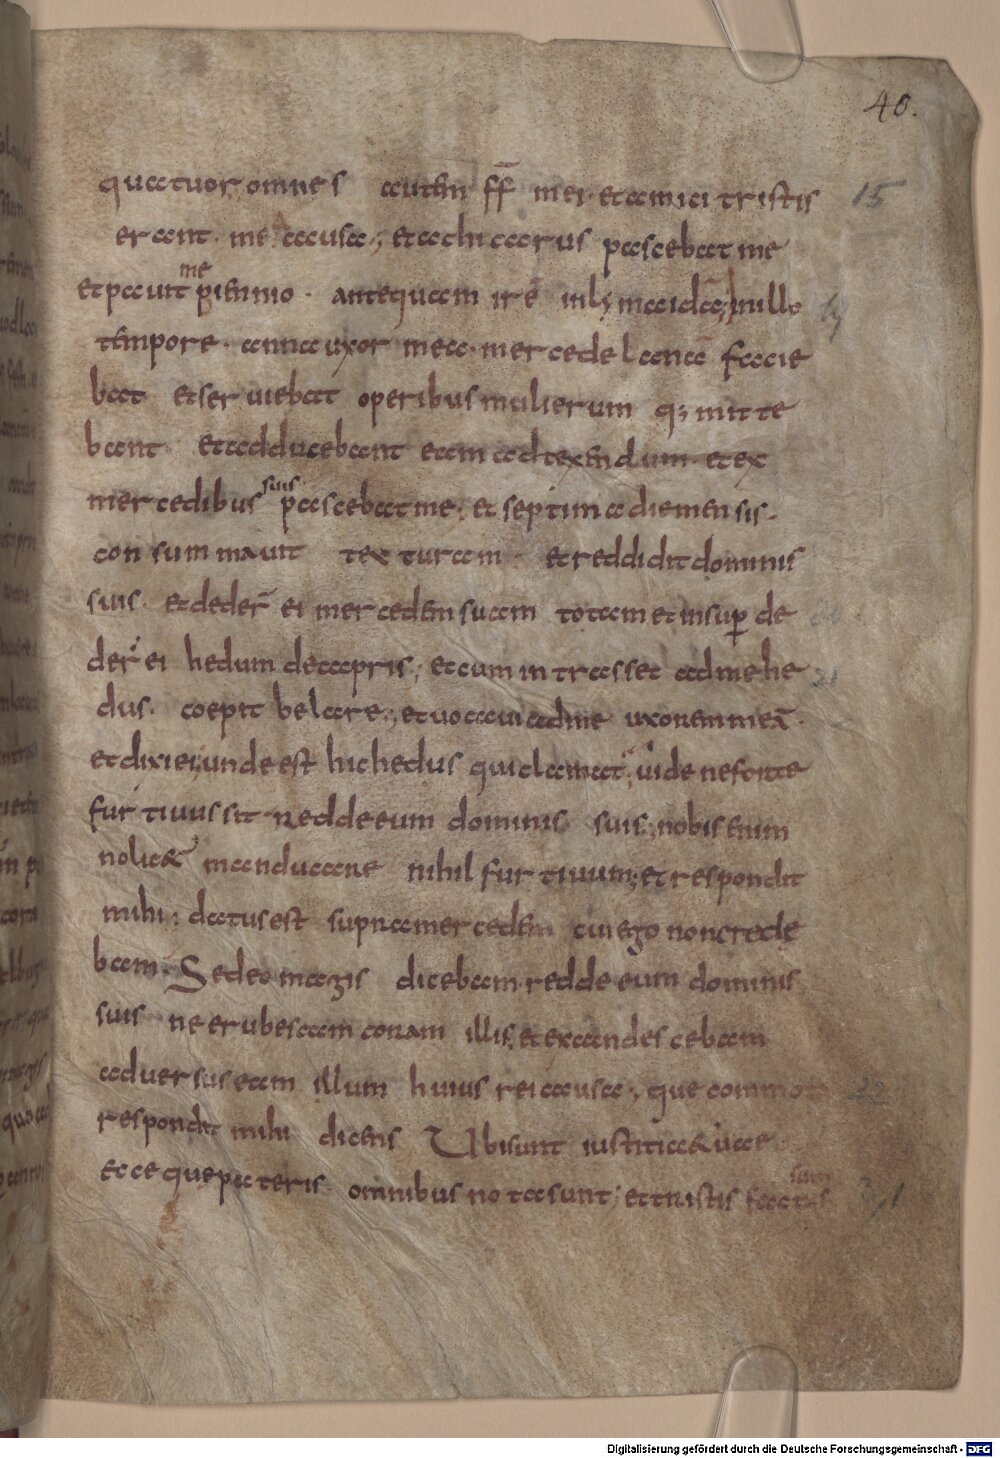 40.
quattuor omnes autem ff̄ mei et amici tristis 15
erant me causa; et achicarus pascebat me
me
et pavit biennio antequam irē in limaidā; in illo 19
tempore anna uxor mea mercede lanea facie
bat et serviebat operibus mulierum q; mitte
bant et adducebant eam ad texendum et ex
mercedibus suis pascebat me; et septima die mensis
consummavit texturam et reddidit dominis
suis et dederr̄ ei mercedem suam totam et insup de
der̄ ei hedum de capris; et cum intrasset ad me he 21
dus coepit belare; et vocavi ad me uxorem meā
et dixi ei unde est hic hedus qui clamat; vide ne forte
furtivus sit redde eum dominis suis; nobis enim
non lic& manducare nihil furtivum; et respondit
mihi: datus est supra mercedem cui ego non crede
bam. Sed eo magis dicebam redde eum dominis
suis ne erubescam coram illis; et excandescebam
adversus eam illum huius rei causa; que commota 22
respondit mihi dicens Ubi sunt iustitiae tuae
sum
Ecce que pateris omnibus nota sunt; et tristis factus 3,1
Digitalisierung gefördert durch die Deutsche Forschungsgemeinschaft - DFG